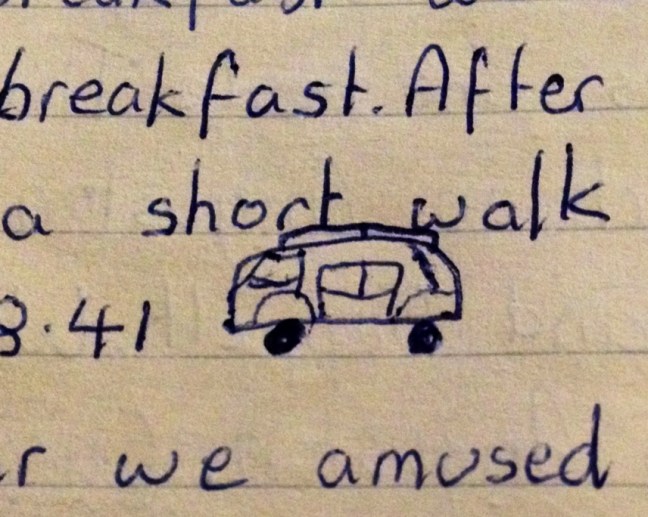 breakfast. After
a short walk
3.41
r we amused